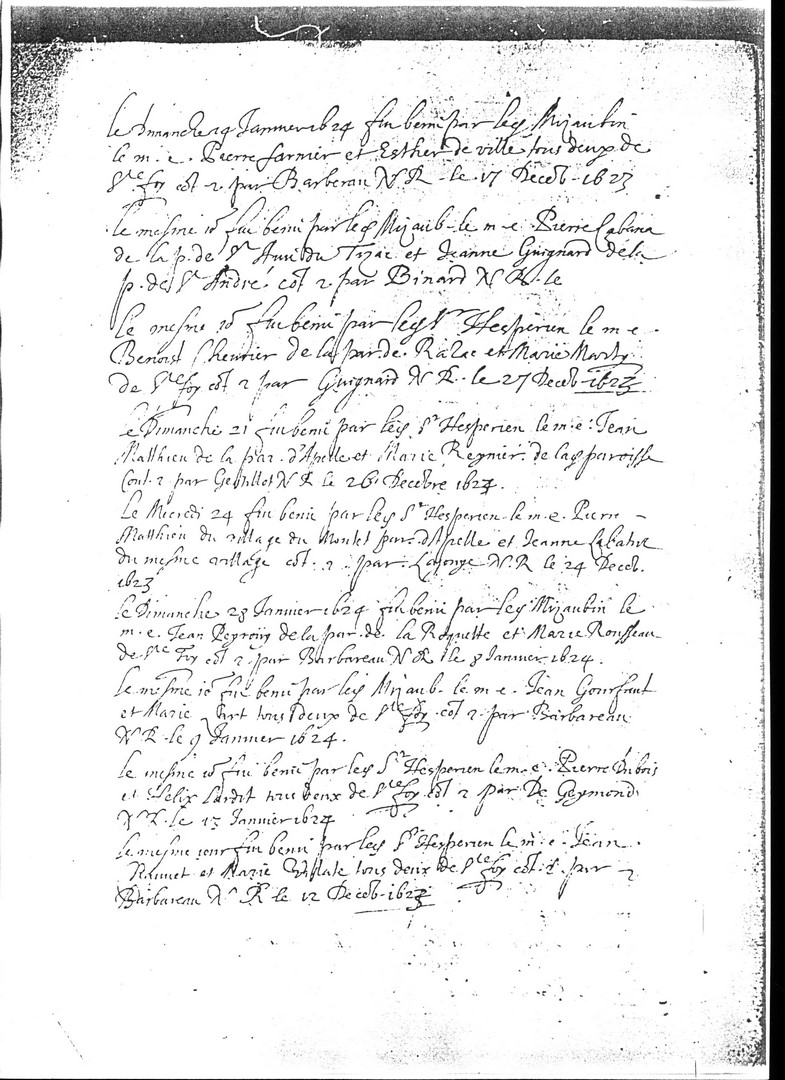 le Dimanche 14 Janvier 1624 fut beni par le Sr Mizaubin
le m. e. Pierre farnier et Esther de ville tous deux de
Ste foy cot 2 par Barberau N R. le 17 Deceb. 1623
le mesme io fut beni par le Sr Mizaub. le m. e. Pierre Cabana
de la p. de St Avi du Tizac et Jeanne Guignard de la
p. de St André cot 2 par Binard N R. le
Le mesme io fut beni par le Sr Hesperien le m. e.
Benoist Cheurier de la par. de Razac et Marie Marty
de Ste foy cot 2 par Guignard N R. le 27 Deceb. 1623
le Dimanche 21 fut beni par le Sr Hesperien le m. e. Jean
Matthieu de la par. d'Apelle et Marie Reynier de la paroisse
Cont. 2 par N R le 26 Decebre 1623.
Le Micredi 24 fut beni par le Sr Hesperien le m. e. Pierre
Matthieu du village du Montet par. d'Apelle et Jeanne Labatut
du mesme village cot. 2 par N. R le 24 Deceb.
1623
le Dimanche 28 Janvier 1624 fut beni par le Sr Mizaubin le
m. e. Jean Peyrony de la par. de la Roquette et Marie Rousseau
de Ste Foy cot 2 par Barbareau N R le 8 Janvier 1624.
Le mesme io fut beni par le Sr Mizaub. le m. e. Jean
et Marie tous deux de Ste foy cot 2 par Barbareau
N R. le 9 Janvier 1624.
le mesme io fut beni par le Sr Hesperien le m. e. Pierre Dubois
et Felix Lardit tous deux de Ste foy cot 2 par De Geymond
N R. le 13 Janvier 1624
le mesme iour fut beni par le Sr Hesperien le m. e. Jean
et Marie tous deux de Ste foy cot. 2 par
Barbareau N R le 12 Deceb. 1623